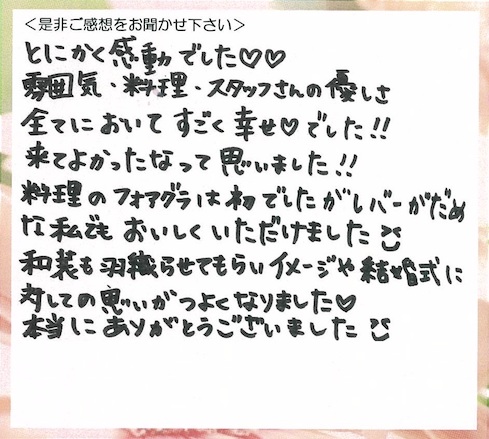 ＜是非ご感想をお聞かせ下さい＞
とにかく感動でした♡♡
雰囲気・料理・スタッフさんの優しさ
全てにおいてすごく幸せ♡でした!!
来てよかったなって思いました!!
料理のフォアグラは初でしたがレバーがだめ
な私でもおいしくいただけました
和装も羽織らせてもらいイメージや結婚式に
対しての思いがつよくなりました♡
本当にありがとうございました